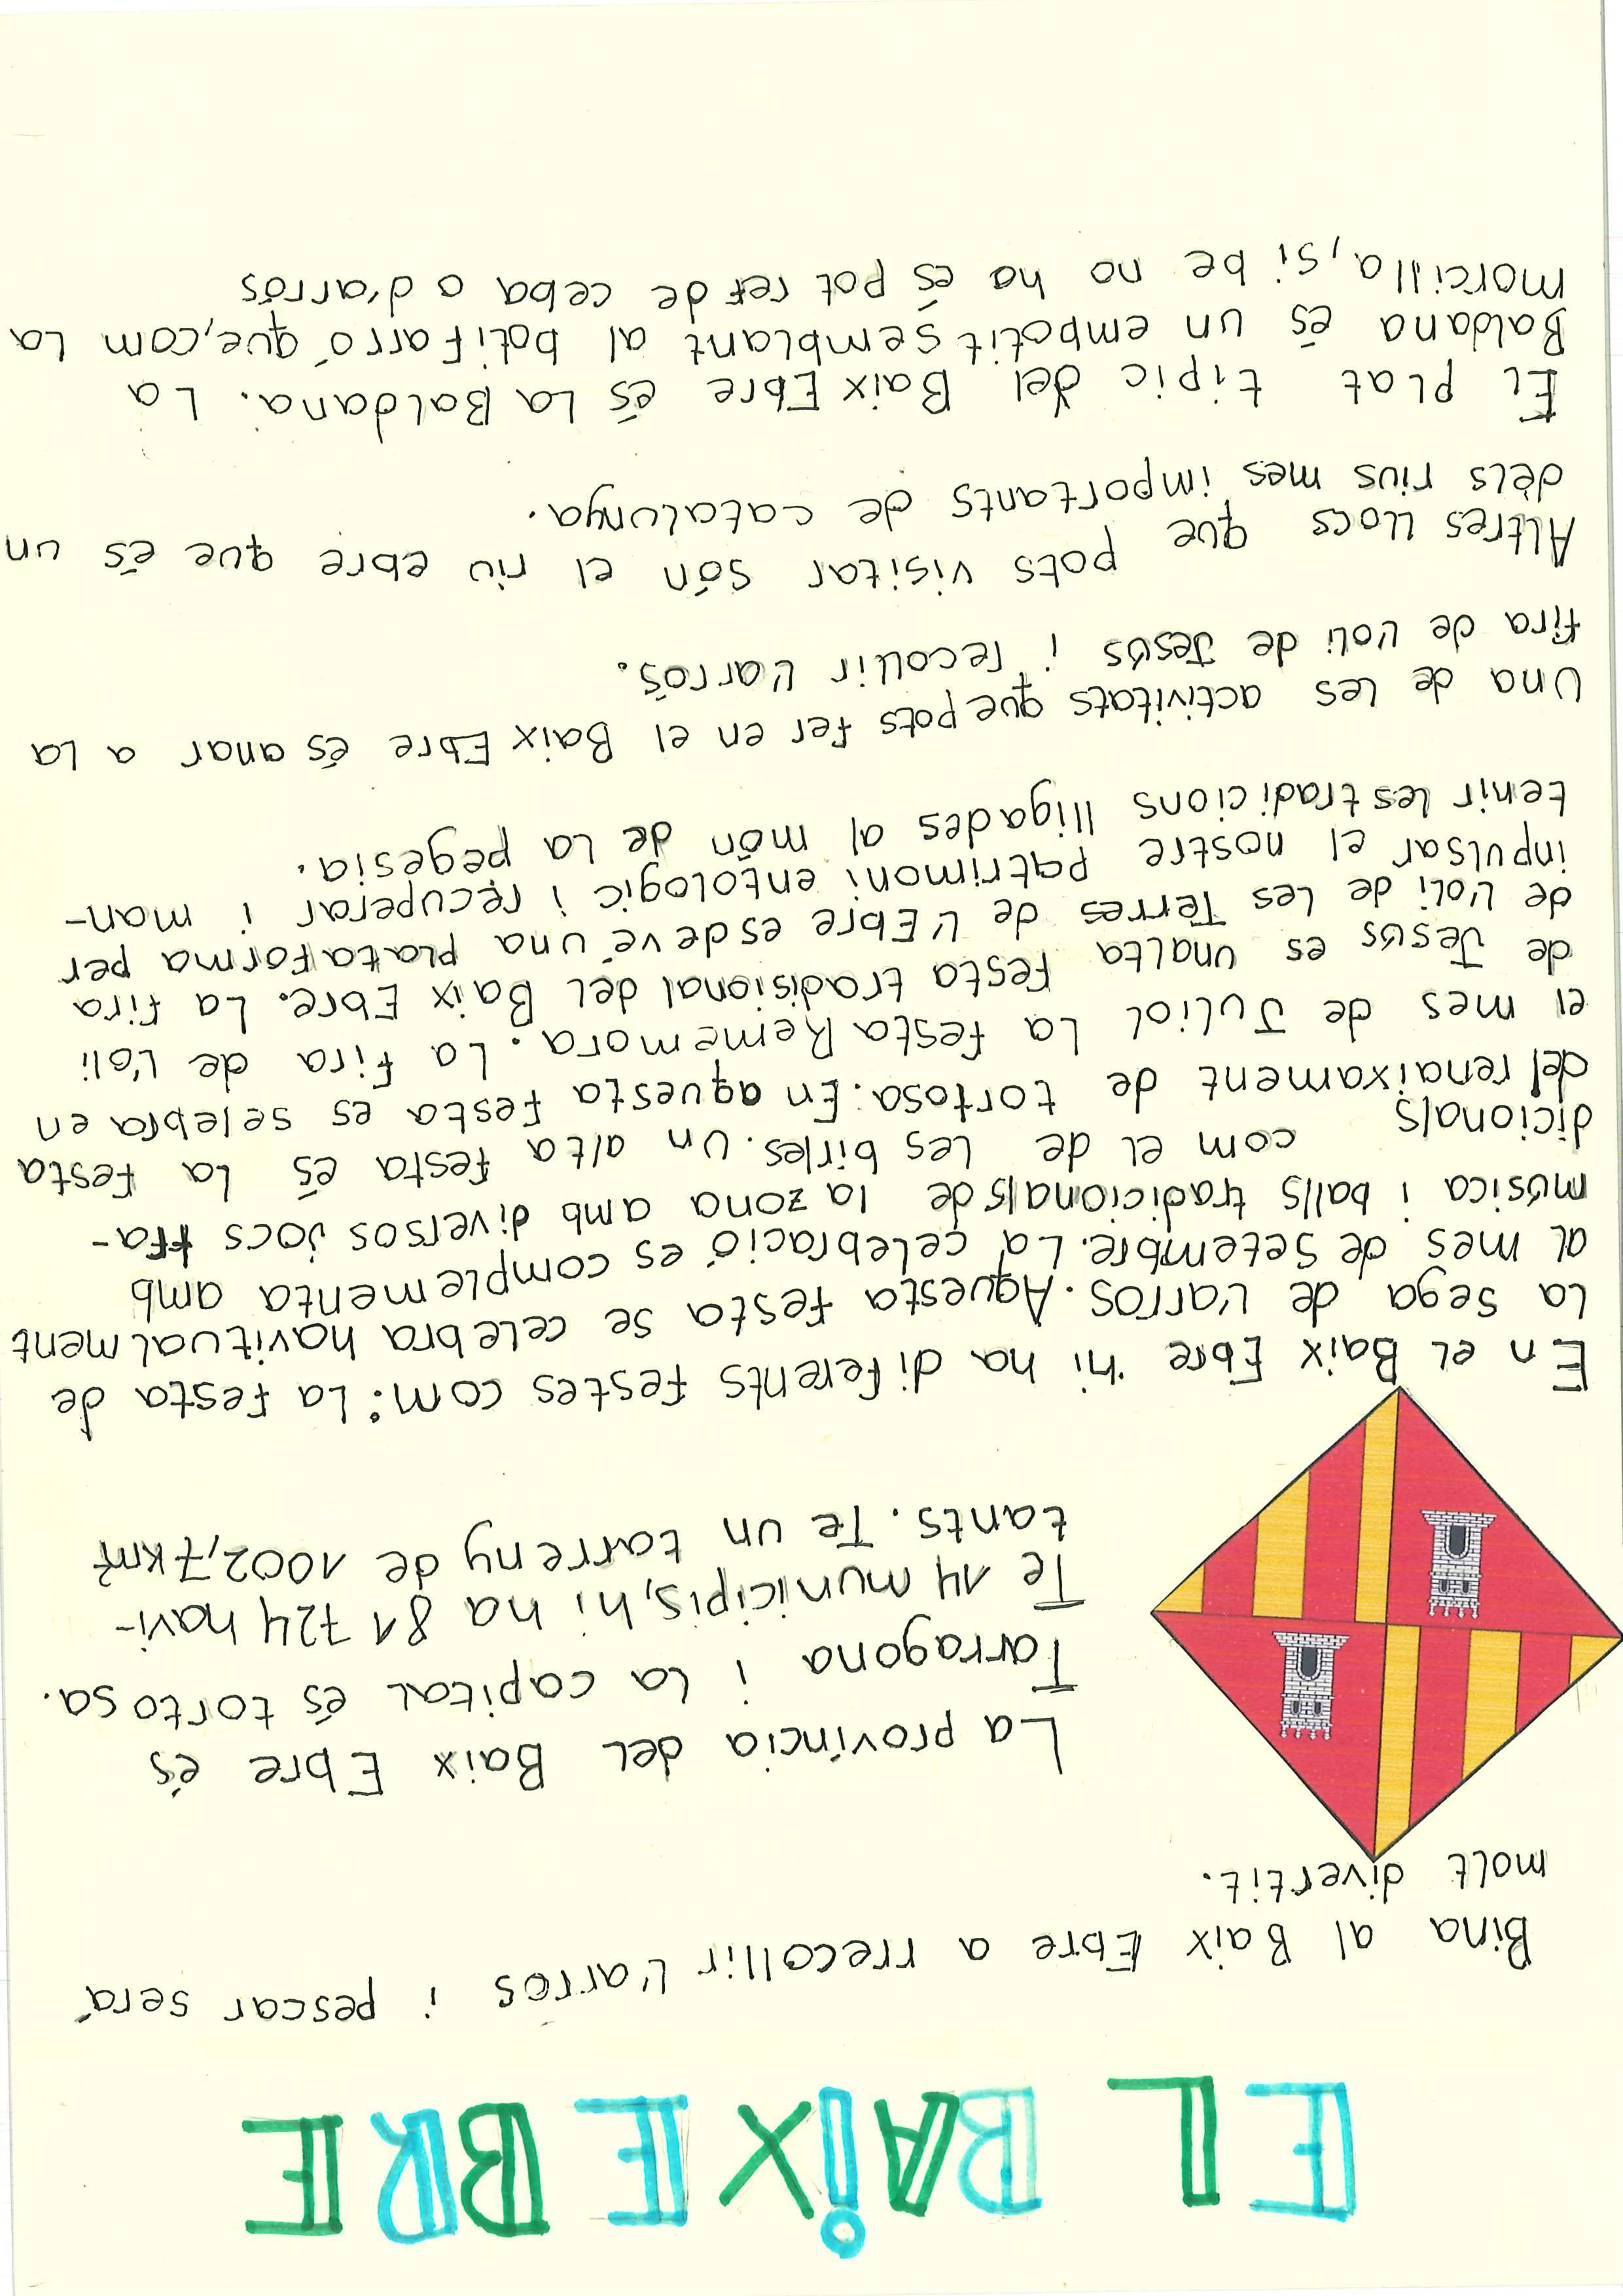 EL BAiX EBRE
Bina al Baix Ebre a rrecollir l'arros i pescar serà
molt divertit.
La província del Baix Ebre és
Tarragona i la capital és tortosa.
Te 14 municipis, hi ha 81 724 havi-
tants. Te un tarreny de 1002,7 km²
En el Baix Ebre hi ha diferents festes com: La festa de
la sega de l'arros. Aquesta festa se celebra havitualment
al mes de Setembre. La celebració es complementa amb
música i balls tradicionals de la zona amb diversos jocs tra-
dicionals com el de les birles. Un alta festa és la festa
del renaixament de tortosa. En aquesta festa es selebra en
el mes de Juliol la festa Rememora. La fira de l'oli
de Jesús es unalta festa tradisional del Baix Ebre. La fira
de l'oli de les Terres de l'Ebre esdevé una plataforma per
inpulsar el nostre patrimoni entologic i recuperar i man-
tenir les tradicions lligades al món de la pegesia.
Una de les activitats que pots fer en el Baix Ebre és anar a la
fira de l'oli de Jesús i recollir l'arros.
Altres llocs que pots visitar són el riu ebre que és un
dels rius mes importants de catalunya.
El plat tipic del Baix Ebre és la Baldana. La
Baldana és un embotit semblant al botifarró que, com la
morcilla, si be no ha és pot ser de ceba o d'arros